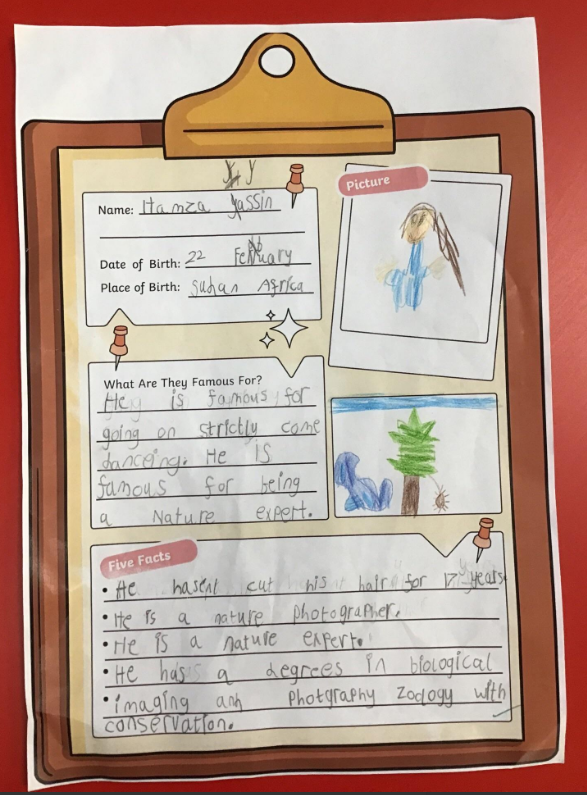 y y
Name: Hamza yassin
Date of Birth: 22 February
Place of Birth: Suhan Africa
Picture
What Are They Famous For?
He is famous for
going on strictly come
danceing. He is
famous for being
a Nature expert.
Five Facts
• He hasent cut his hair for 17 years
• He is a nature photographer.
• He is a nature expert.
• He has a degrees in biological
• imaging anh photgraphy zoology with
conservation.